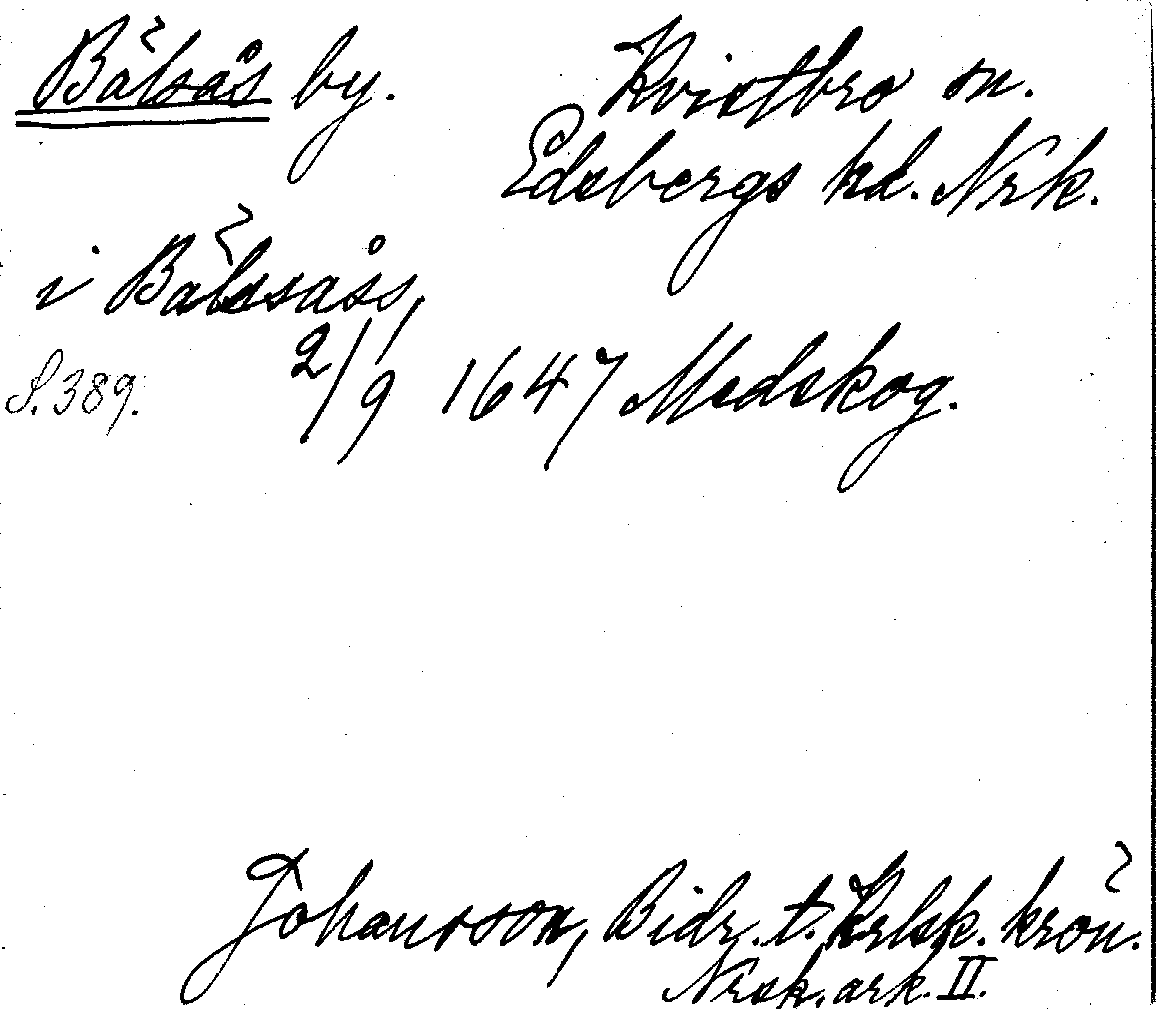 Bälsås by. Kvistbro sn.
Edsbergs hd. Nrk.
i Bälssåss,
S. 389. 2/9 1647 Medskog.
Johansson, Bidr. t. Krlsk. krön.
Nrsk. ark. II.